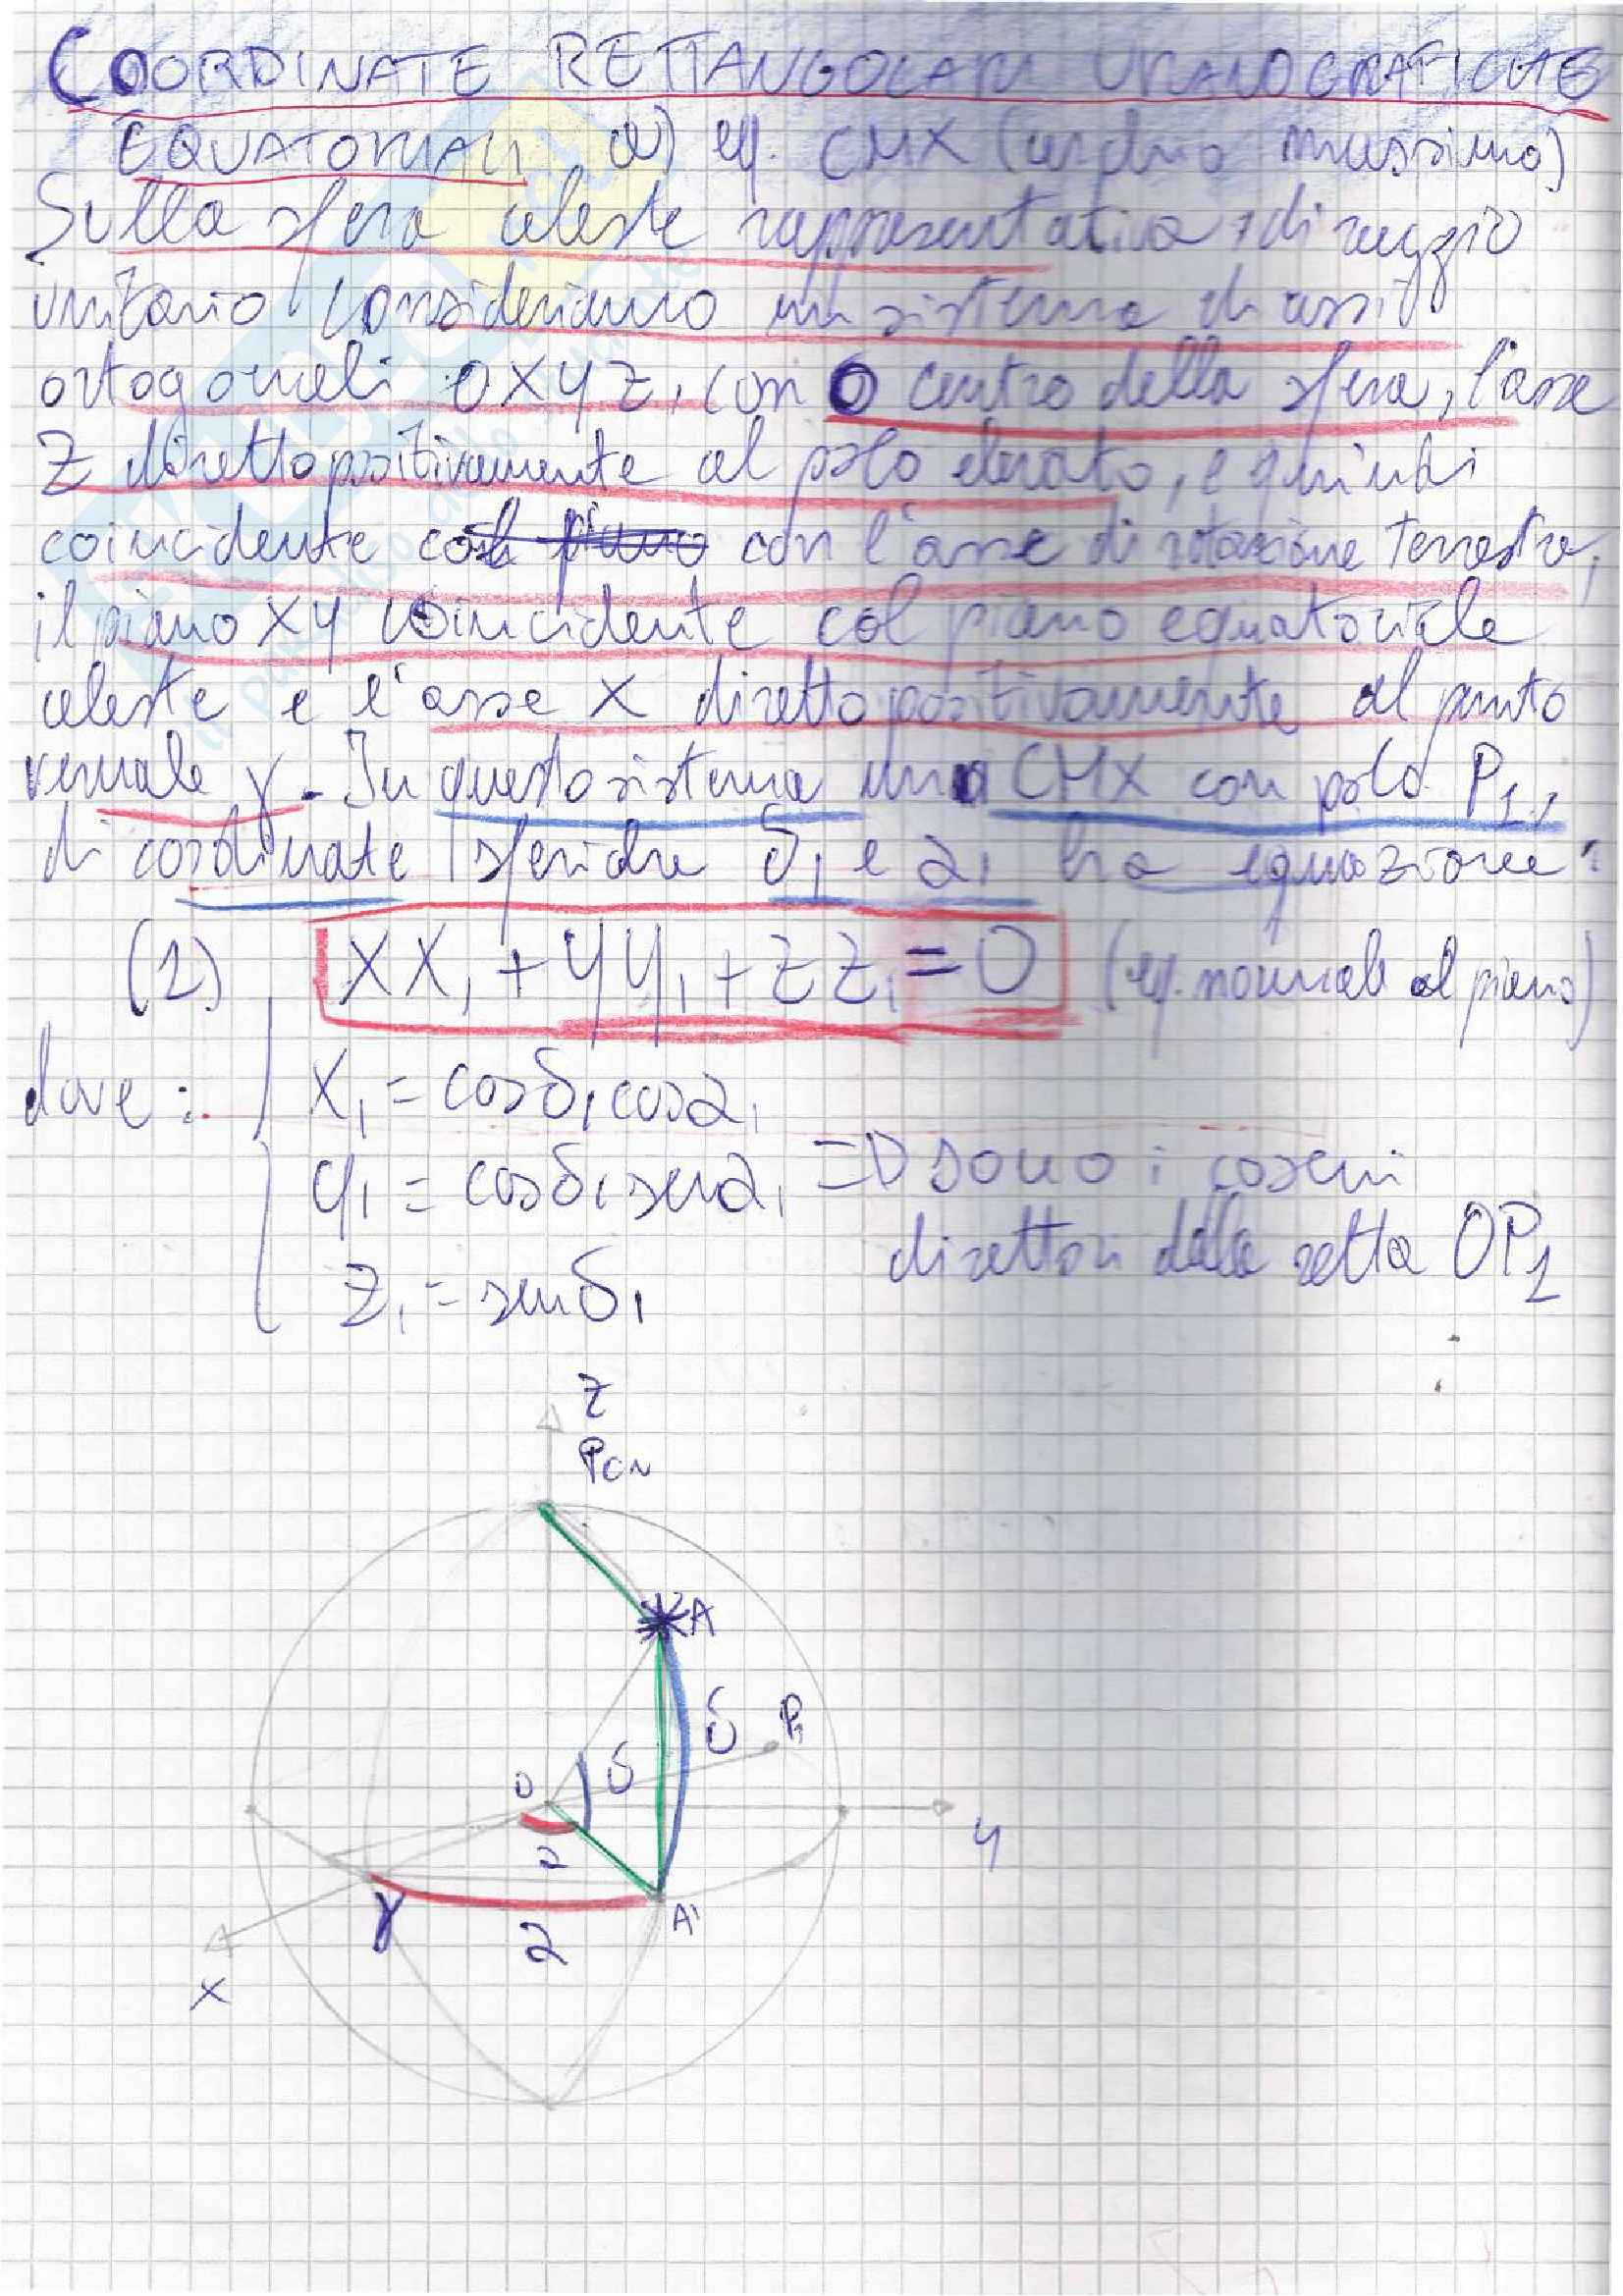 COORDINATE RETTANGOLARI URANOGRAFICHE
EQUATORIALI a) eq. CMX (cerchio massimo)
Sulla sfera celeste rappresentativa, di raggio
unitario consideriamo un sistema di assi
ortogonali OXYZ, con O centro della sfera, l'asse
Z diretto positivamente al polo elevato, e quindi
coincidente col piano con l'asse di rotazione terrestre,
il piano XY coincidente col piano equatoriale
celeste e l'asse X diretto positivamente al punto
vernale γ. In questo sistema una CMX con polo P1,
di coordinate sferiche δ1 e α1 ha equazione:
(1) XX1 + YY1 + ZZ1 = 0 (eq. normale al piano)
dove: X1 = cosδ1cosα1
Y1 = cosδ1senα1 => sono i coseni
direttori della retta OP1
Z1 = senδ1
Z
PCN
A
P1
δ
δ
O
α
Y
γ
A'
α
X